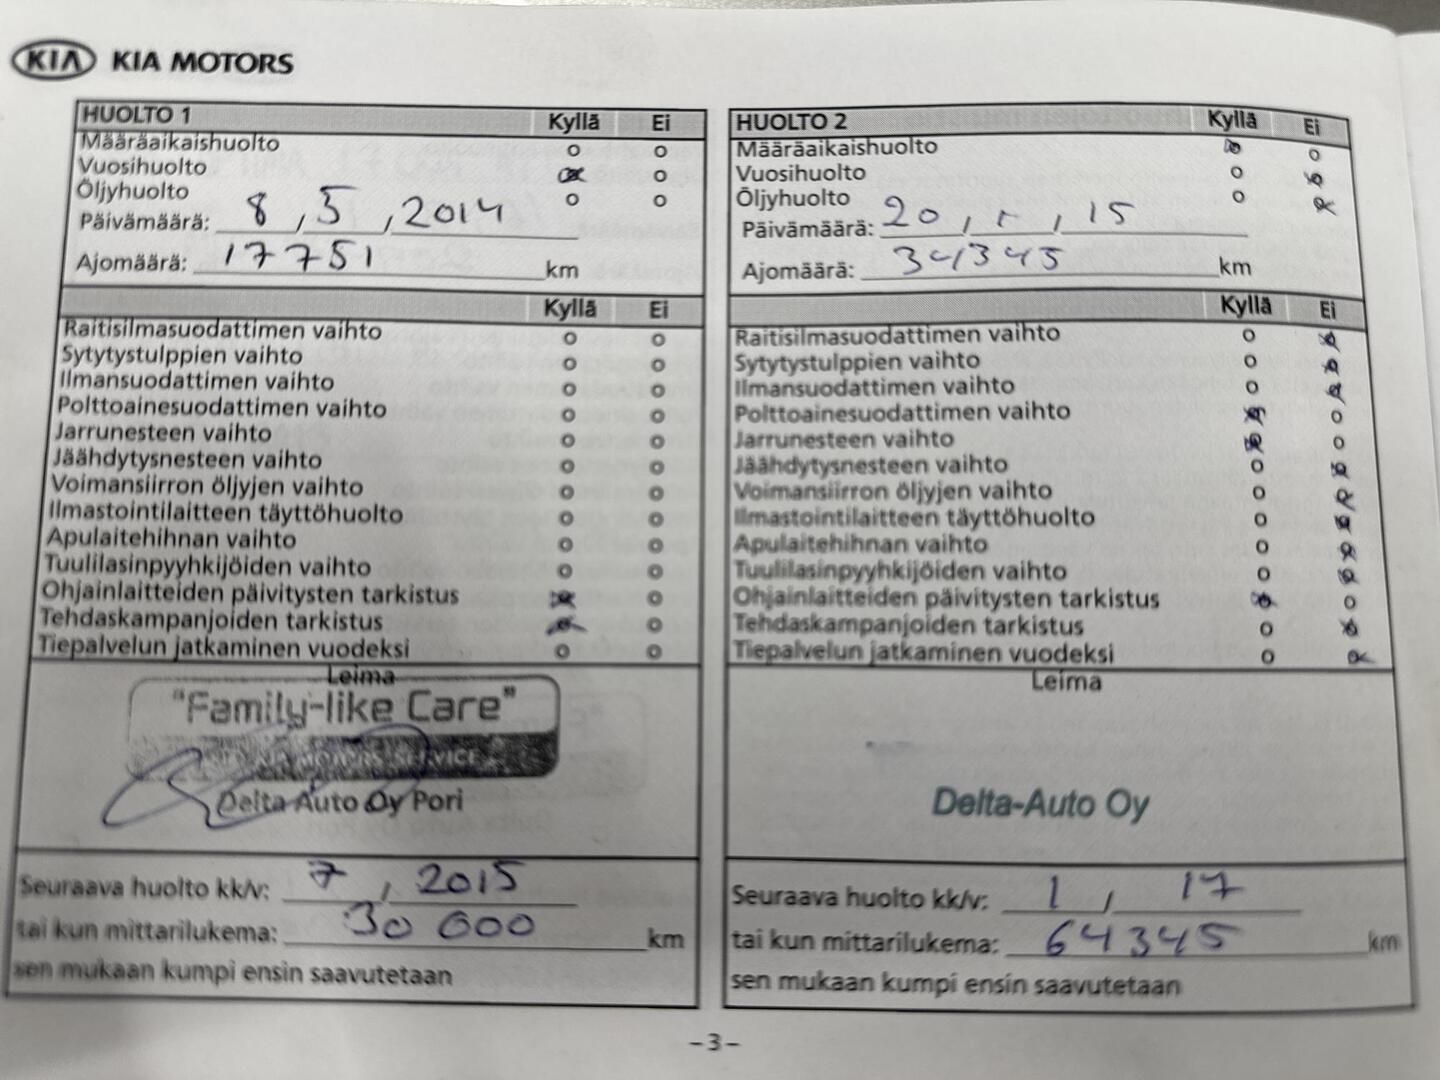 KIA KIA MOTORS
HUOLTO 1 Kyllä Ei
Määräaikaishuolto
Vuosihuolto
Öljyhuolto
Päivämäärä: 8 , 5 , 2014
Ajomäärä: 17751 km
Kyllä Ei
Raitisilmasuodattimen vaihto
Sytytystulppien vaihto
Ilmansuodattimen vaihto
Polttoainesuodattimen vaihto
Jarrunesteen vaihto
Jäähdytysnesteen vaihto
Voimansiirron öljyjen vaihto
Ilmastointilaitteen täyttöhuolto
Apulaitehihnan vaihto
Tuulilasinpyyhkijöiden vaihto
Ohjainlaitteiden päivitysten tarkistus
Tehdaskampanjoiden tarkistus
Tiepalvelun jatkaminen vuodeksi
Leima
"Family-like Care"
MOTORS SERVICE
Delta Auto Oy Pori
Seuraava huolto kk/v: 7 / 2015
tai kun mittarilukema: 30 000 km
sen mukaan kumpi ensin saavutetaan
HUOLTO 2 Kyllä Ei
Määräaikaishuolto
Vuosihuolto
Öljyhuolto
Päivämäärä: 20 , , 15
Ajomäärä: 34345 km
Kyllä Ei
Raitisilmasuodattimen vaihto
Sytytystulppien vaihto
Ilmansuodattimen vaihto
Polttoainesuodattimen vaihto
Jarrunesteen vaihto
Jäähdytysnesteen vaihto
Voimansiirron öljyjen vaihto
Ilmastointilaitteen täyttöhuolto
Apulaitehihnan vaihto
Tuulilasinpyyhkijöiden vaihto
Ohjainlaitteiden päivitysten tarkistus
Tehdaskampanjoiden tarkistus
Tiepalvelun jatkaminen vuodeksi
Leima
Delta-Auto Oy
Seuraava huolto kk/v: 1 / 17
tai kun mittarilukema: 64345 km
sen mukaan kumpi ensin saavutetaan
-3-